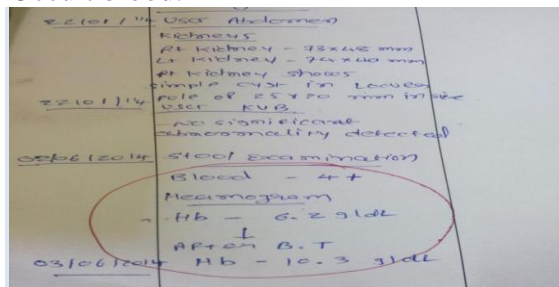 22/01/14 USG Abdomen
Kidneys
Rt Kidney - 73x48 mm
Lt Kidney - 74x40 mm
Rt Kidney shows
simple cyst in Lower
pole of 25x20 mm in size
22/01/14 USG KUB
- No significant
abnormality detected
02/06/2014 Stool Examination
Blood - 4+
Heamogram
Hb - 6.2 g/dL
↓
After B.T
03/06/2014 Hb - 10.3 g/dL